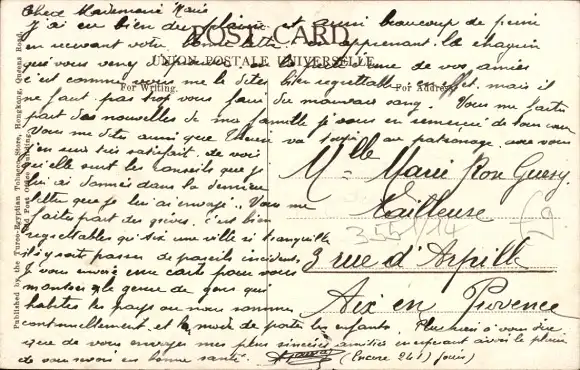 Chere Mademoiselle Marie
J'ai eu bien du plaisir et aussi beaucoup de peine
POST CARD
en recevant votre bonne lettre en apprenant le chagrin
UNION POSTALE UNIVERSELLE
que vous venez la perte d'une de vos amies
c'est comme vous me le dites bien regrettable en effet, mais il
For Writing.
For Address.
ne faut pas trop vous faire du mauvais sang. Vous me faites
part des nouvelles de ma famille je vous en remercie de tout cœur
Vous me dites aussi que va toujours au patronage avec vous
j'en suis très satisfait de voir
qu'elle suit les conseils que je
lui ai donnés dans la dernière
lettre que je lui ai envoyé. Vous me
faites part des grèves. c'est bien
regrettables qu'Aix une ville si tranquille
il s'y soit passer de pareils incidents
Je vous envoie une carte pour vous
montrer le genre de gens qui
habites les pays ou nous sommes
continuellement et le mode de porter les enfants. Plus rien à vous dire
que de vous envoyer mes plus sincères amitiés en espérant avoir le plaisir
de vous revoir en bonne santé. (Encore 241 jours)
Mlle Marie Rose
Tailleuse
355/14
3 rue d'Arpille
Aix en Provence
Published by the Turco-Egyptian Tobacco Store, Hongkong, Queens Road,
Old Post Office Building.